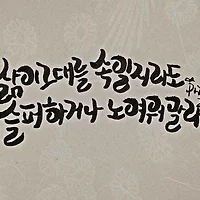 삶이 그대를 속일지라도
슬퍼하거나 노여워 말라